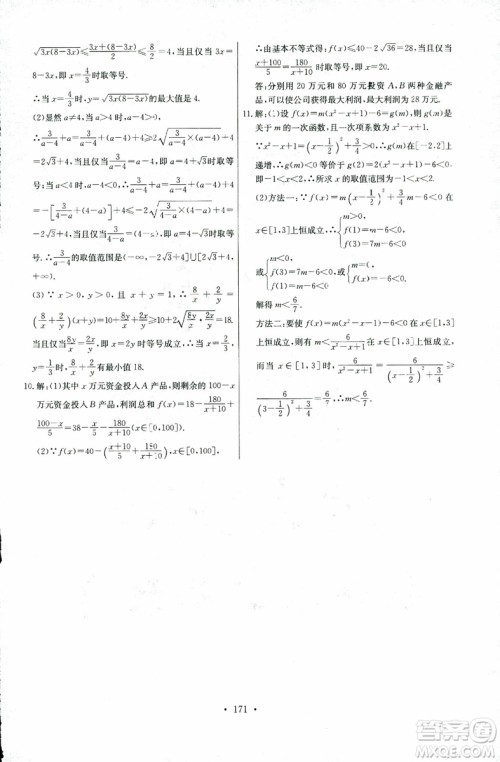 √3x(8-3x) ≤ (3x+8-3x)/2 = 8/2 = 4,当且仅当 3x=
8-3x,即 x=4/3 时取等号.
∴当 x=4/3 时,√3x(8-3x) 的最大值是 4.
(2)显然 a≠4,当 a>4 时,a-4>0,
∴3/(a-4)+a=3/(a-4)+(a-4)+4≥2√(3/(a-4)×(a-4))+4
=2√3+4,当且仅当 3/(a-4)=a-4,即 a=4+√3 时取等
号;当 a<4 时,a-4<0,∴3/(a-4)+a=3/(a-4)+(a-4)+4
=-[3/(4-a)+(4-a)]+4≤-2√(3/(4-a)×(4-a))+4=
-2√3+4,当且仅当 3/(4-a)=4-a,即 a=4-√3 时取等
号.∴3/(a-4)+a 的取值范围是(-∞,-2√3+4]∪[2√3+4,
+∞).
(3)∵x>0,y>0,x+y=1,∴8/x+2/y=
(8/x+2/y)(x+y)=10+8y/x+2x/y≥10+2√(8y/x·2x/y)=18.
当且仅当 8y/x=2x/y 时等号成立,∴当 x=2/3,
y=1/3时,8/x+2/y有最小值 18.
10.解:(1)其中 x 万元资金投入 A 产品,则剩余的 100-x
万元资金投入 B 产品,利润总和 f(x)=18-180/(x+10)+
(100-x)/5=38-x/5-180/(x+10)(x∈[0,100]).
(2)∵f(x)=40-((x+10)/5+180/(x+10)),x∈[0,100],
∴由基本不等式得:f(x)≤40-2√36=28,当且仅当
(x+10)/5=180/(x+10)时取等号,即 x=20.
答:分别用 20 万元和 80 万元投资 A、B 两种金融产
品,可以使公司获得最大利润,最大利润为 28 万元.
11.解:(1)设 f(x)=m(x²-x+1)-6=g(m),则 g(m)是
关于 m 的一次函数,且一次项系数为 x²-x+1.
∵x²-x+1=(x-1/2)²+3/4>0,∴g(m)在[-2,2]上
递增,∴g(m)<0 等价于 g(2)=2(x²-x+1)-6<0,解得
-1<x<2.
(2)方法一:∵f(x)=m(x²-x+1)-6=m(x-1/2)²+3/4m-6<0
在 x∈[1,3]上恒成立,∴{m>0,
f(3)=7m-6<0或{m<0,
f(1)=m-6<0或{m=0,
-6<0.
解得 m<6/7.
方法二:要使 f(x)=m(x²-x+1)-6<0 在[1,3]
上恒成立,则有 m<6/(x²-x+1)在 x∈[1,3]上恒成立,
而当 x∈[1,3]时,6/(x²-x+1)=6/((x-1/2)²+3/4)≥
6/((3-1/2)²+3/4)=6/7,∴m<6/7.
· 171 ·
答案圈
MXQE.COM